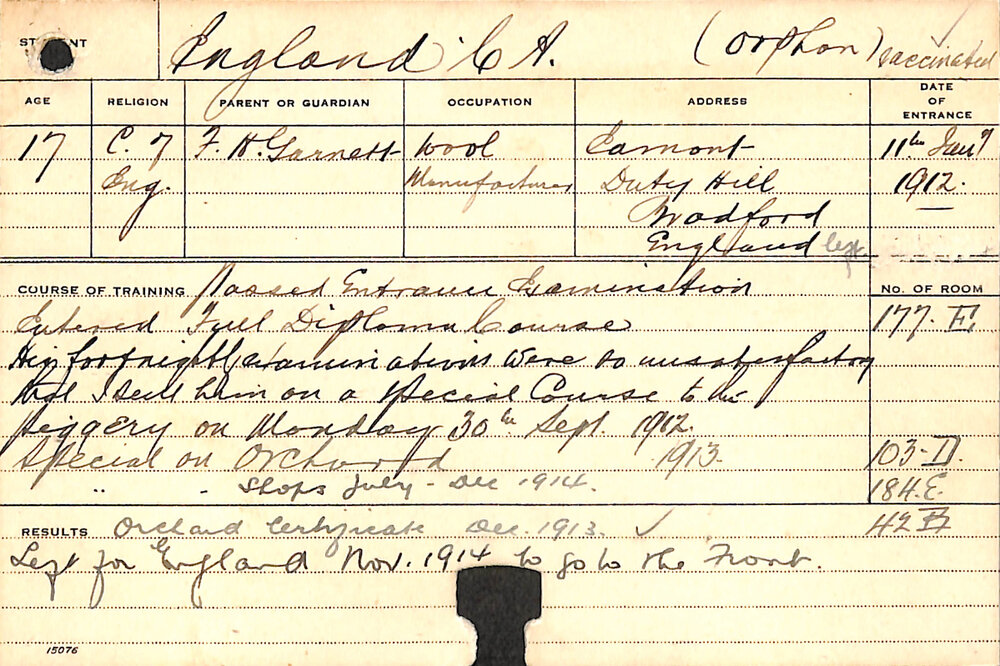 STUDENT England C A. (orphan) vaccinated
AGE RELIGION PARENT OR GUARDIAN OCCUPATION ADDRESS DATE OF ENTRANCE
17 C. of F. H. Garnett Wool Eamont 11th Jan'y
Eng. Manufacturer Duty Hill 1912.
Bradford
England left
COURSE OF TRAINING Passed Entrance Examination No. OF ROOM
Entered Full Diploma Course 177. E.
His fortnightly examinations were so unsatisfactory
that I sent him on a special Course to the
piggery on Monday 30th Sept. 1912.
Special on Orchard 1913. 103-D.
" - Shops July - Dec 1914. 184.E.
RESULTS Orchard Certificate Dec. 1913. ✓ 42 B
Left for England Nov. 1914 to go to the Front.
15076